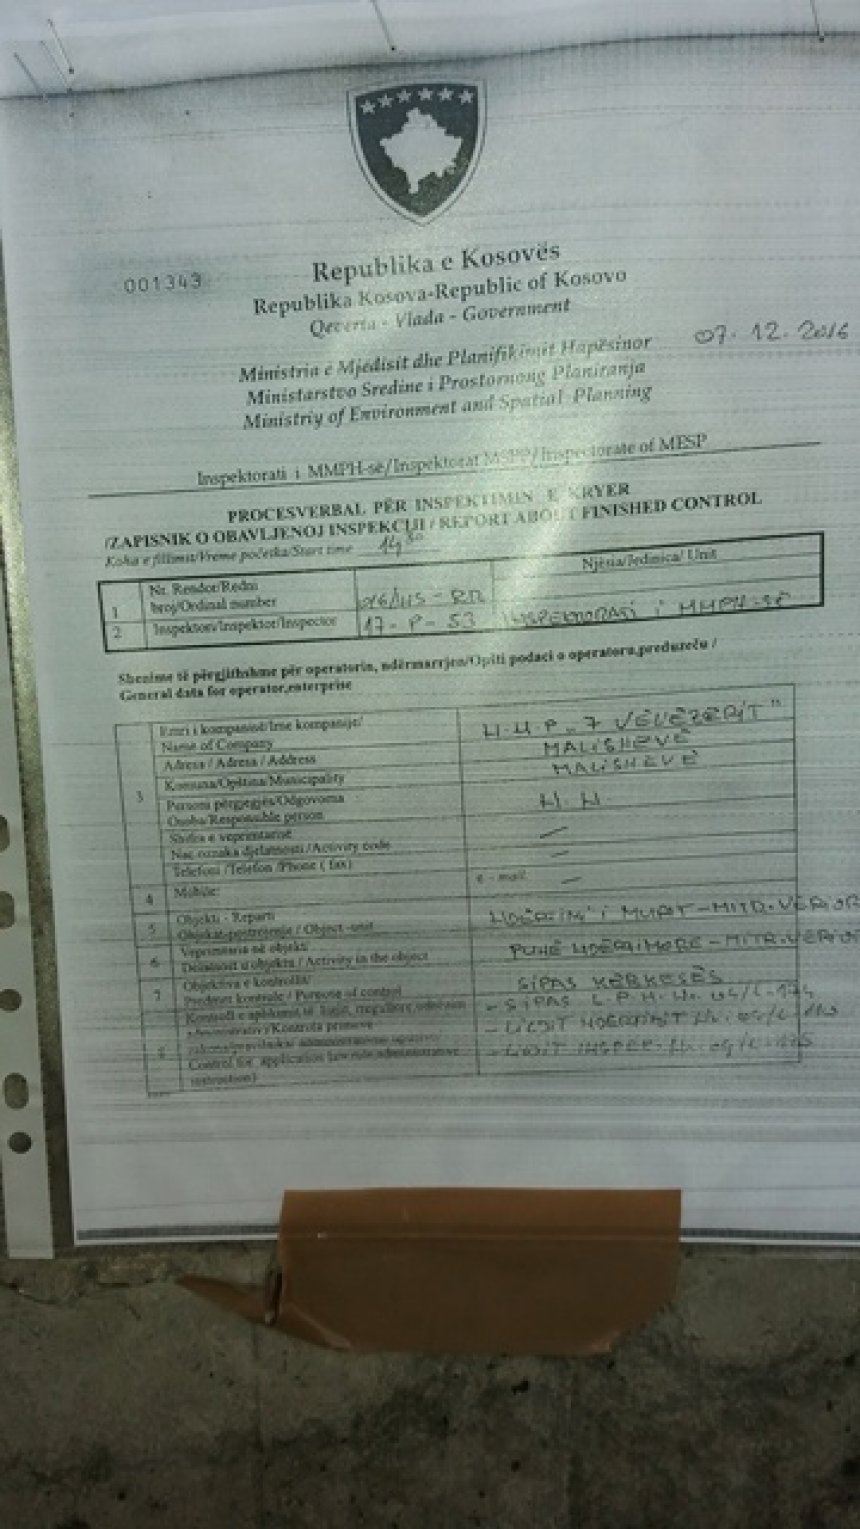 001343
Republika e Kosovës
Republika Kosova-Republic of Kosovo
Qeveria - Vlada - Government
07. 12. 2016
Ministria e Mjedisit dhe Planifikimit Hapësinor
Ministarstvo Sredine i Prostornong Planiranja
Ministriy of Environment and Spatial Planning
Inspektorati i MMPH-së/Inspektorat MSPP/Inspectorate of MESP
PROCESVERBAL PËR INSPEKTIMIN E KRYER
/ZAPISNIK O OBAVLJENOJ INSPEKCIJI / REPORT ABOUT FINISHED CONTROL
Koha e fillimit/Vreme početka/Start time 14 30
Njësia/Jedinica/ Unit
1 Nr. Rendor/Redni
broj/Ordinal number
2 Inspektori/Inspektor/Inspector 17-P-53 INSPEKTORATI I MMPH-SË
Shënime të përgjithshme për operatorin, ndërmarrjen/Opšti podaci o operatoru,preduzeču /
General data for operator,enterprise
3 Emri i kompanisë/Ime kompanije/
Name of Company N.N.P "7 VËLLEZËRIT"
Adresa / Adresa / Address MALISHEVË
Komuna/Opština/Municipality MALISHEVË
Personi përgjegjës/Odgovorna
Osoba/Responsible person N.N.
Shifra e veprimtarisë
Nac oznaka djelatnosti /Activity code
Telefoni /Telefon /Phone ( fax)
4 Mobile: e - mail:
5 Objekti - Reparti
Objekat-postrojenje / Object -unit NDËRTIMI I MURIT - MITR.VERIOR
6 Veprimtaria në objekt/
Delatnost u objektu / Activity in the object PUNË NDËRTIMORE - MITR.VERIO
7 Objektiva e kontrollit/
Predmet kontrole / Puruose of control SIPAS KËRKESËS
8 Kontroll e aplikimit të ligjit, rregullore,udhëzim
administrativ/Kontrola primene
Control for application law,rule,administrative
instruction)
- SIPAS L.P.H. Nr. 04/L-174
- LIGJIT NDERTIMIT Nr.
- LIGJIT INSPEK. Nr.